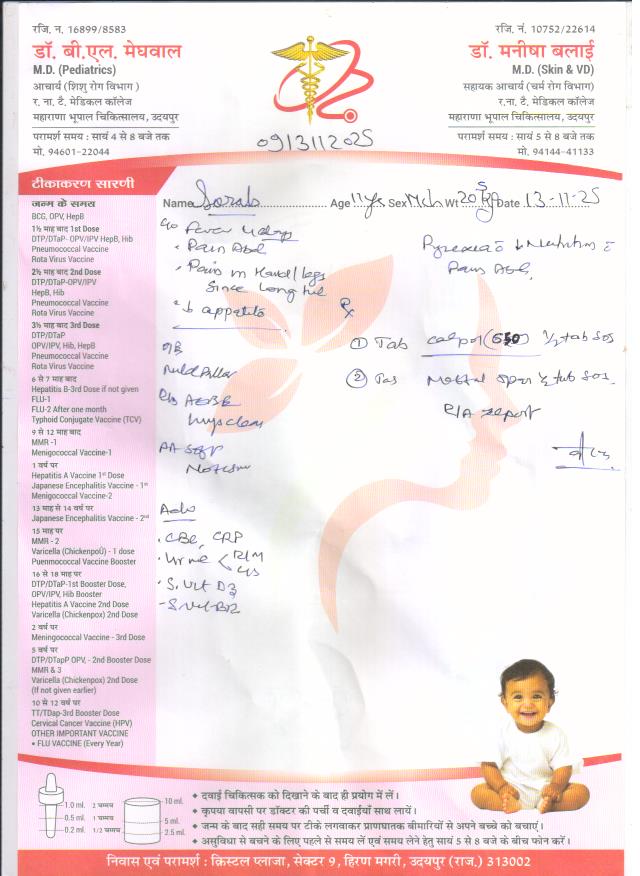 रजि. न. 16899/8583
डॉ. बी.एल. मेघवाल
M.D. (Pediatrics)
आचार्य (शिशु रोग विभाग)
र. ना. टै. मेडिकल कॉलेज
महाराणा भूपाल चिकित्सालय, उदयपुर
परामर्श समय : सायं 4 से 8 बजे तक
मो. 94601-22044
रजि. नं. 10752/22614
डॉ. मनीषा बलाई
M.D. (Skin & VD)
सहायक आचार्य (चर्म रोग विभाग)
र.ना. टै. मेडिकल कॉलेज
महाराणा भूपाल चिकित्सालय, उदयपुर
परामर्श समय : सायं 5 से 8 बजे तक
मो. 94144-41133
09/3112025
टीकाकरण सारणी
जन्म के समय
BCG, OPV, HepB
1½ माह बाद 1st Dose
DTP/DTaP- OPV/IPV HepB, Hib
Pneumococcal Vaccine
Rota Virus Vaccine
2½ माह बाद 2nd Dose
DTP/DTaP-OPV/IPV
HepB, Hib
Pneumococcal Vaccine
Rota Virus Vaccine
3½ माह बाद 3rd Dose
DTP/DTaP
OPV/IPV, Hib, HepB
Pneumococcal Vaccine
Rota Virus Vaccine
6 से 7 माह बाद
Hepatitis B-3rd Dose if not given
FLU-1
FLU-2 After one month
Typhoid Conjugate Vaccine (TCV)
9 से 12 माह बाद
MMR -1
Menigococcal Vaccine-1
1 वर्ष पर
Hepatitis A Vaccine 1st Dose
Japanese Encephalitis Vaccine - 1st
Menigococcal Vaccine-2
13 माह से 14 वर्ष पर
Japanese Encephalitis Vaccine - 2nd
15 माह पर
MMR - 2
Varicella (ChickenpoÛ) - 1 dose
Puenmococcal Vaccine Booster
16 से 18 माह पर
DTP/DTaP-1st Booster Dose,
OPV/IPV, Hib Booster
Hepatitis A Vaccine 2nd Dose
Varicella (Chickenpox) 2nd Dose
2 वर्ष पर
Meningococcal Vaccine - 3rd Dose
5 वर्ष पर
DTP/DTapP OPV, - 2nd Booster Dose
MMR & 3
Varicella (Chickenpox) 2nd Dose
(If not given earlier)
10 से 12 वर्ष पर
TT/TDap-3rd Booster Dose
Cervical Cancer Vaccine (HPV)
OTHER IMPORTANT VACCINE
• FLU VACCINE (Every Year)
Name Age 11 yr Sex Mch Wt 20.5 kg Date 13-11-25
c/o Fever
• Pain Abd
• Pain in Hand/legs
Since long
↓ appetite
Pallor
Pain Abd,
Rx
① Tab calpol (650) ½ tab SOS
② Tab spas ½ tab SOS.
R/A report
Adv
• CBC, CRP
• Urine R/M C/S
• S. Vit D3
- S. Vit B12
1.0 ml. 2 चम्मच
0.5 ml. 1 चम्मच
0.2 ml. 1/2 चम्मच
10 ml.
5 ml.
2.5 ml.
◆ दवाई चिकित्सक को दिखाने के बाद ही प्रयोग में लें।
◆ कृपया वापसी पर डॉक्टर की पर्ची व दवाईयाँ साथ लायें।
◆ जन्म के बाद सही समय पर टीके लगवाकर प्राणघातक बीमारियों से अपने बच्चे को बचाएं।
◆ असुविधा से बचने के लिए पहले से समय लें एवं समय लेने हेतु सायं 5 से 8 बजे के बीच फोन करें।
निवास एवं परामर्श : क्रिस्टल प्लाजा, सेक्टर 9, हिरण मगरी, उदयपुर (राज.) 313002